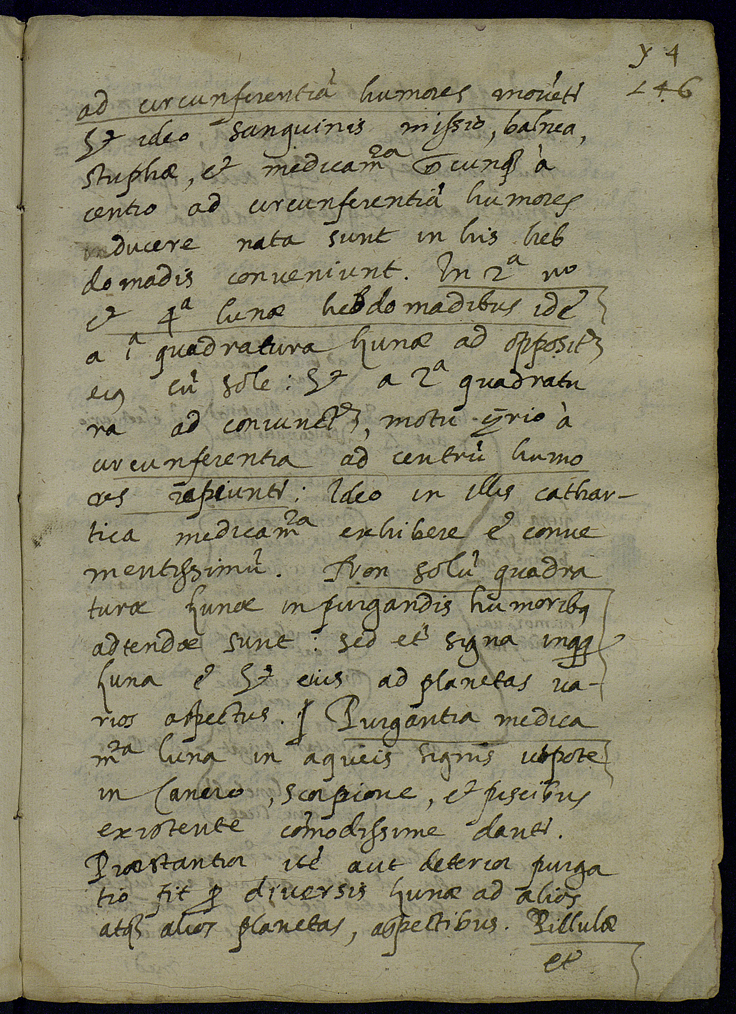 y 4
146
ad circunferentiā humores movēt
Et ideo, sanguinis missio, balnea,
stuphæ, et medicam̄ᵗᵃ à
centro ad circunferentiā humores
educere nata sunt in his heb
domadis conveniunt. In 2ᵃ vo
et 4ᵃ lunæ hebdomadibus idē
a 1ᵃ quadratura Lunæ ad
cū sole: Et a 2ᵃ quadratu
ra ad motu à
circunferentia ad centrū humo
res rapiunt: Ideo in illis cathar-
tica medicam̄ᵗᵃ exhibere ē conve
nientissimū. Non solū quadra
turæ Lunæ in purgandis humoribꝫ
adtendæ sunt: sed etiā signa
Luna ē Et eius ad planetas va-
rios aspectus. Purgantia medica
mᵗᵃ luna in aqueis signis utpote
in Cancro, scorpione, et piscibus
existente cōmodissime dant.
Præstantior itē aut deterior purga
tio fit ꝑ diversis Lunæ ad alios
atqꝫ alios planetas, aspectibus. Pillulæ
et